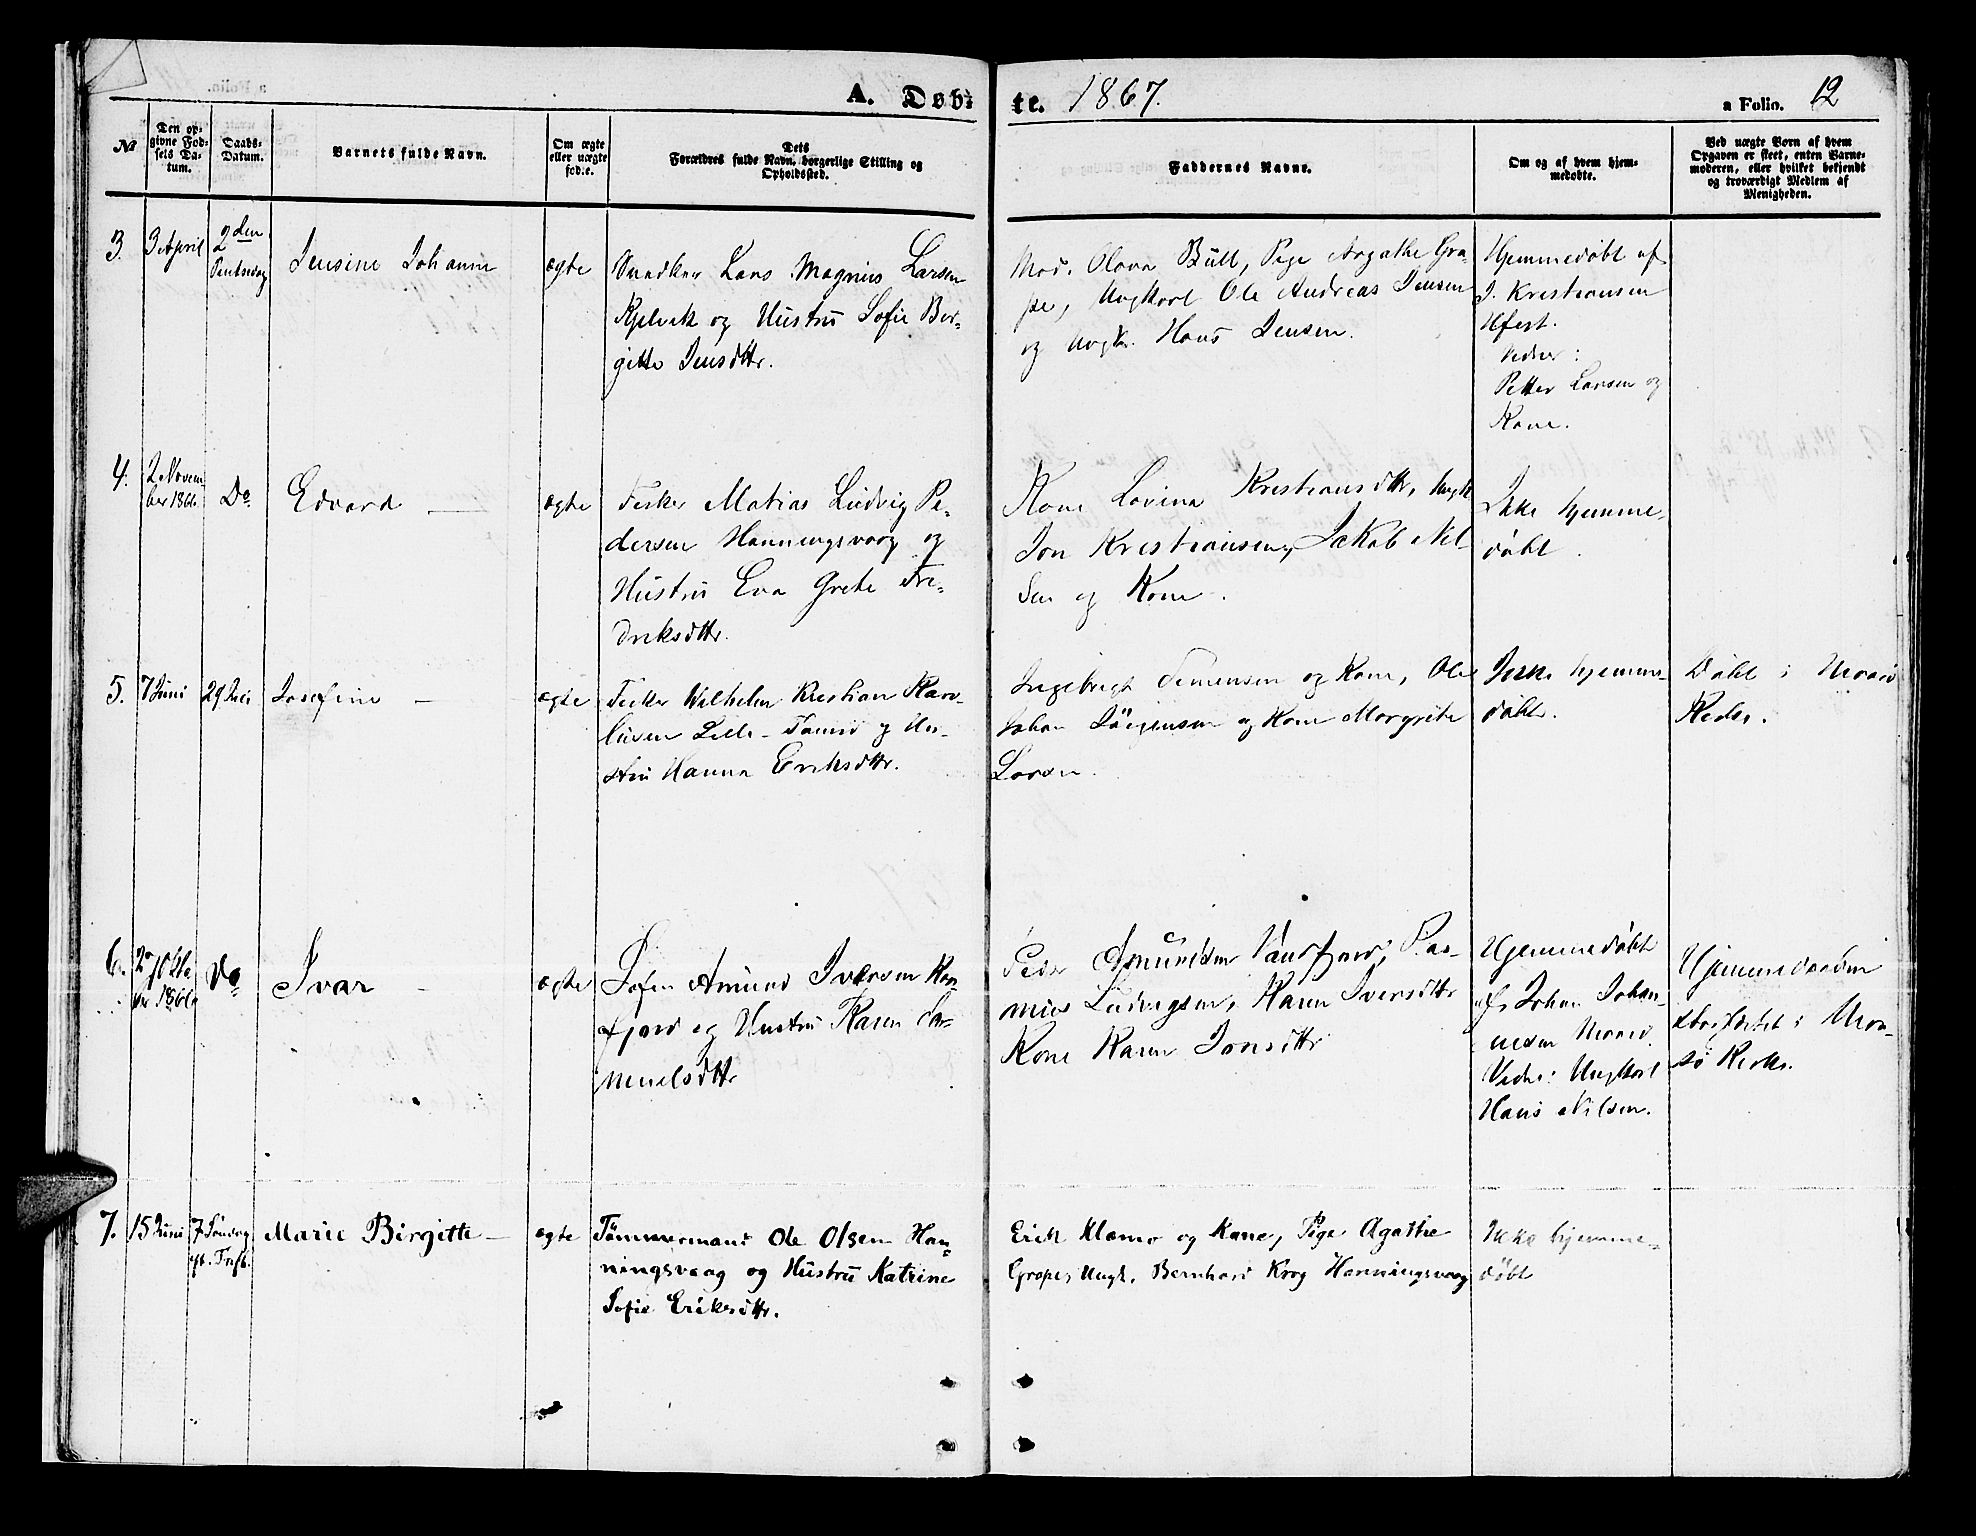 A. Døb-
te. 1867.
a Folio. 12
№
Den op-
givne Fød-
sels Da-
tum.
Daabs-
Datum.
Barnets fulde Navn.
Om ægte
eller uægte
fød.e.
Dets
Forældres fulde Navn, borgerlige Stilling og
Opholdssted.
Faddernes Navne.
Om og af hvem hjem-
medøbte.
Ved uægte Børn af hvem
Opgaven er skeet, enten Barne-
moderen, eller hvilket bekjendt
og troværdigt Medlem af
Menigheden.
3.
3 April
2den
Pintsedag
Jensine Johanne
ægte
Snedker Lars Magnus Larsen
Kjelvik og Hustru Sofie Ber-
gitte Jensdttr.
Mad. Olava Büll, Pige Aagathe Gra-
pe, Ungkarl Ole Andreas Jensen
og Ungk. Hans Jensen.
Hjemmedøbt af
J. Kristiansen
Vidner:
Petter Larsen og
Kone.
4.
2 Novem-
ber 1866
Do
Edvard
ægte
Fisker Matias Ludvig Pe-
dersen Honningsvaag og
Hustru Eva Grete Fre-
driksdttr.
Kone Lovina Kristiansdttr, Ungk
Jon Kristiansen, Jakob Nil-
sen og Kone.
Ikke hjemme-
døbt.
5.
7 Juni
29 Juli
Josefine
ægte
Fisker Wilhelm Kristian Karo-
liusen Lille-Tamsø og Hu-
stru Hanna Eriksdttr.
Ingebrigt Simensen og Kone, Ole
Johan Jörgensen og Kone Margrete
Larsen.
Ikke hjemme-
døbt.
Døbt i
6.
27 Okto
ber 1866
Do
Ivar
ægte
Amund Iversen
fjord og Hustru Karen Sa-
muelsdttr
Peder Amundsen Ras-
mus Ludvigsen, Karen Iversdttr
Kone Karen Jonsdttr
Hjemmedøbt
af Johan Johan-
nesen
Vidne: Ungkarl
Hans Nilsen.
Hjemmedaaben
7.
15 Juni
7 Søndag
eft. Trefb.
Marie Birgitte
ægte
Tømmermand Ole Olsen Hon-
ningsvaag og Hustru Katrine
Sofie Eriksdttr.
Erik Klemo og Kone, Pige Agathe
Grape, Ungk. Bernhard Krog Honningsvaag
Ikke hjemme-
døbt